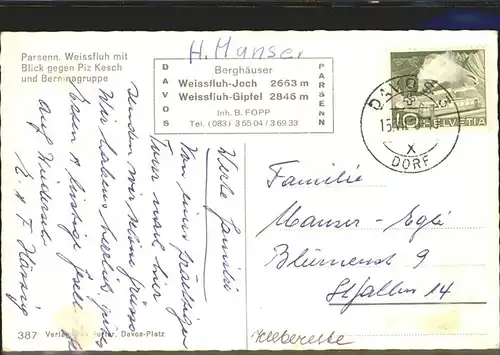 Parsenn. Weissfluh mit
Blick gegen Piz Kesch
und Berninagruppe
H. Manser
DAVOS
Berghäuser
Weissfluh-Joch 2663 m
Weissfluh-Gipfel 2845 m
Inh. B. FOPP
Tel. (083) 3 55 04 / 3 69 33
PARSENN
DAVOS
DORF
X
10 HELVETIA
Werte Familie
Von einer
Tour nach hier
senden wir Ihnen Grüsse
Wir haben herrlich
Essen & lustige
Auf Wiederseh
E. & F.
Familie
Manser-Egli
Blumenst 9
St Gallen 14
387 Verlag Davos-Platz